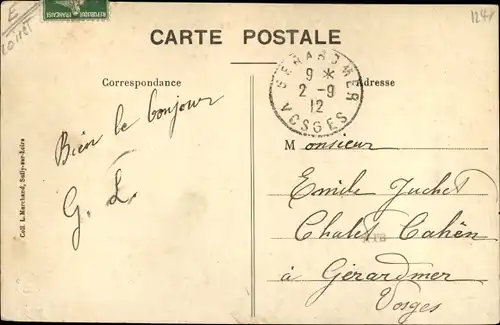 E
Loiret
REPUBLIQUE FRANÇAISE
124
CARTE POSTALE
Correspondance
Adresse
GERARDMER
9 *
2 - 9
12
VOSGES
Bien le bonjour
G. L.
Monsieur
Emile Juchet
Chalet Cahën
à Gérardmer
Vosges
Coll. L. Marchand, Sully-sur-Loire